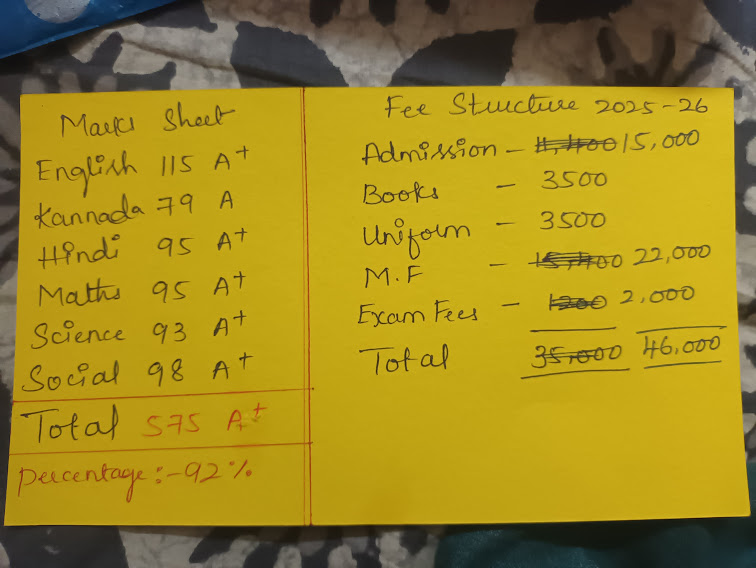 Marks Sheet
English 115 A+
Kannada 79 A
Hindi 95 A+
Maths 95 A+
Science 93 A+
Social 98 A+
Total 575 A+
Percentage:- 92%
Fee Structure 2025-26
Admission - 11,400 15,000
Books - 3500
Uniform - 3500
M.F - 15,400 22,000
Exam Fees - 1200 2,000
Total 35,000 46,000